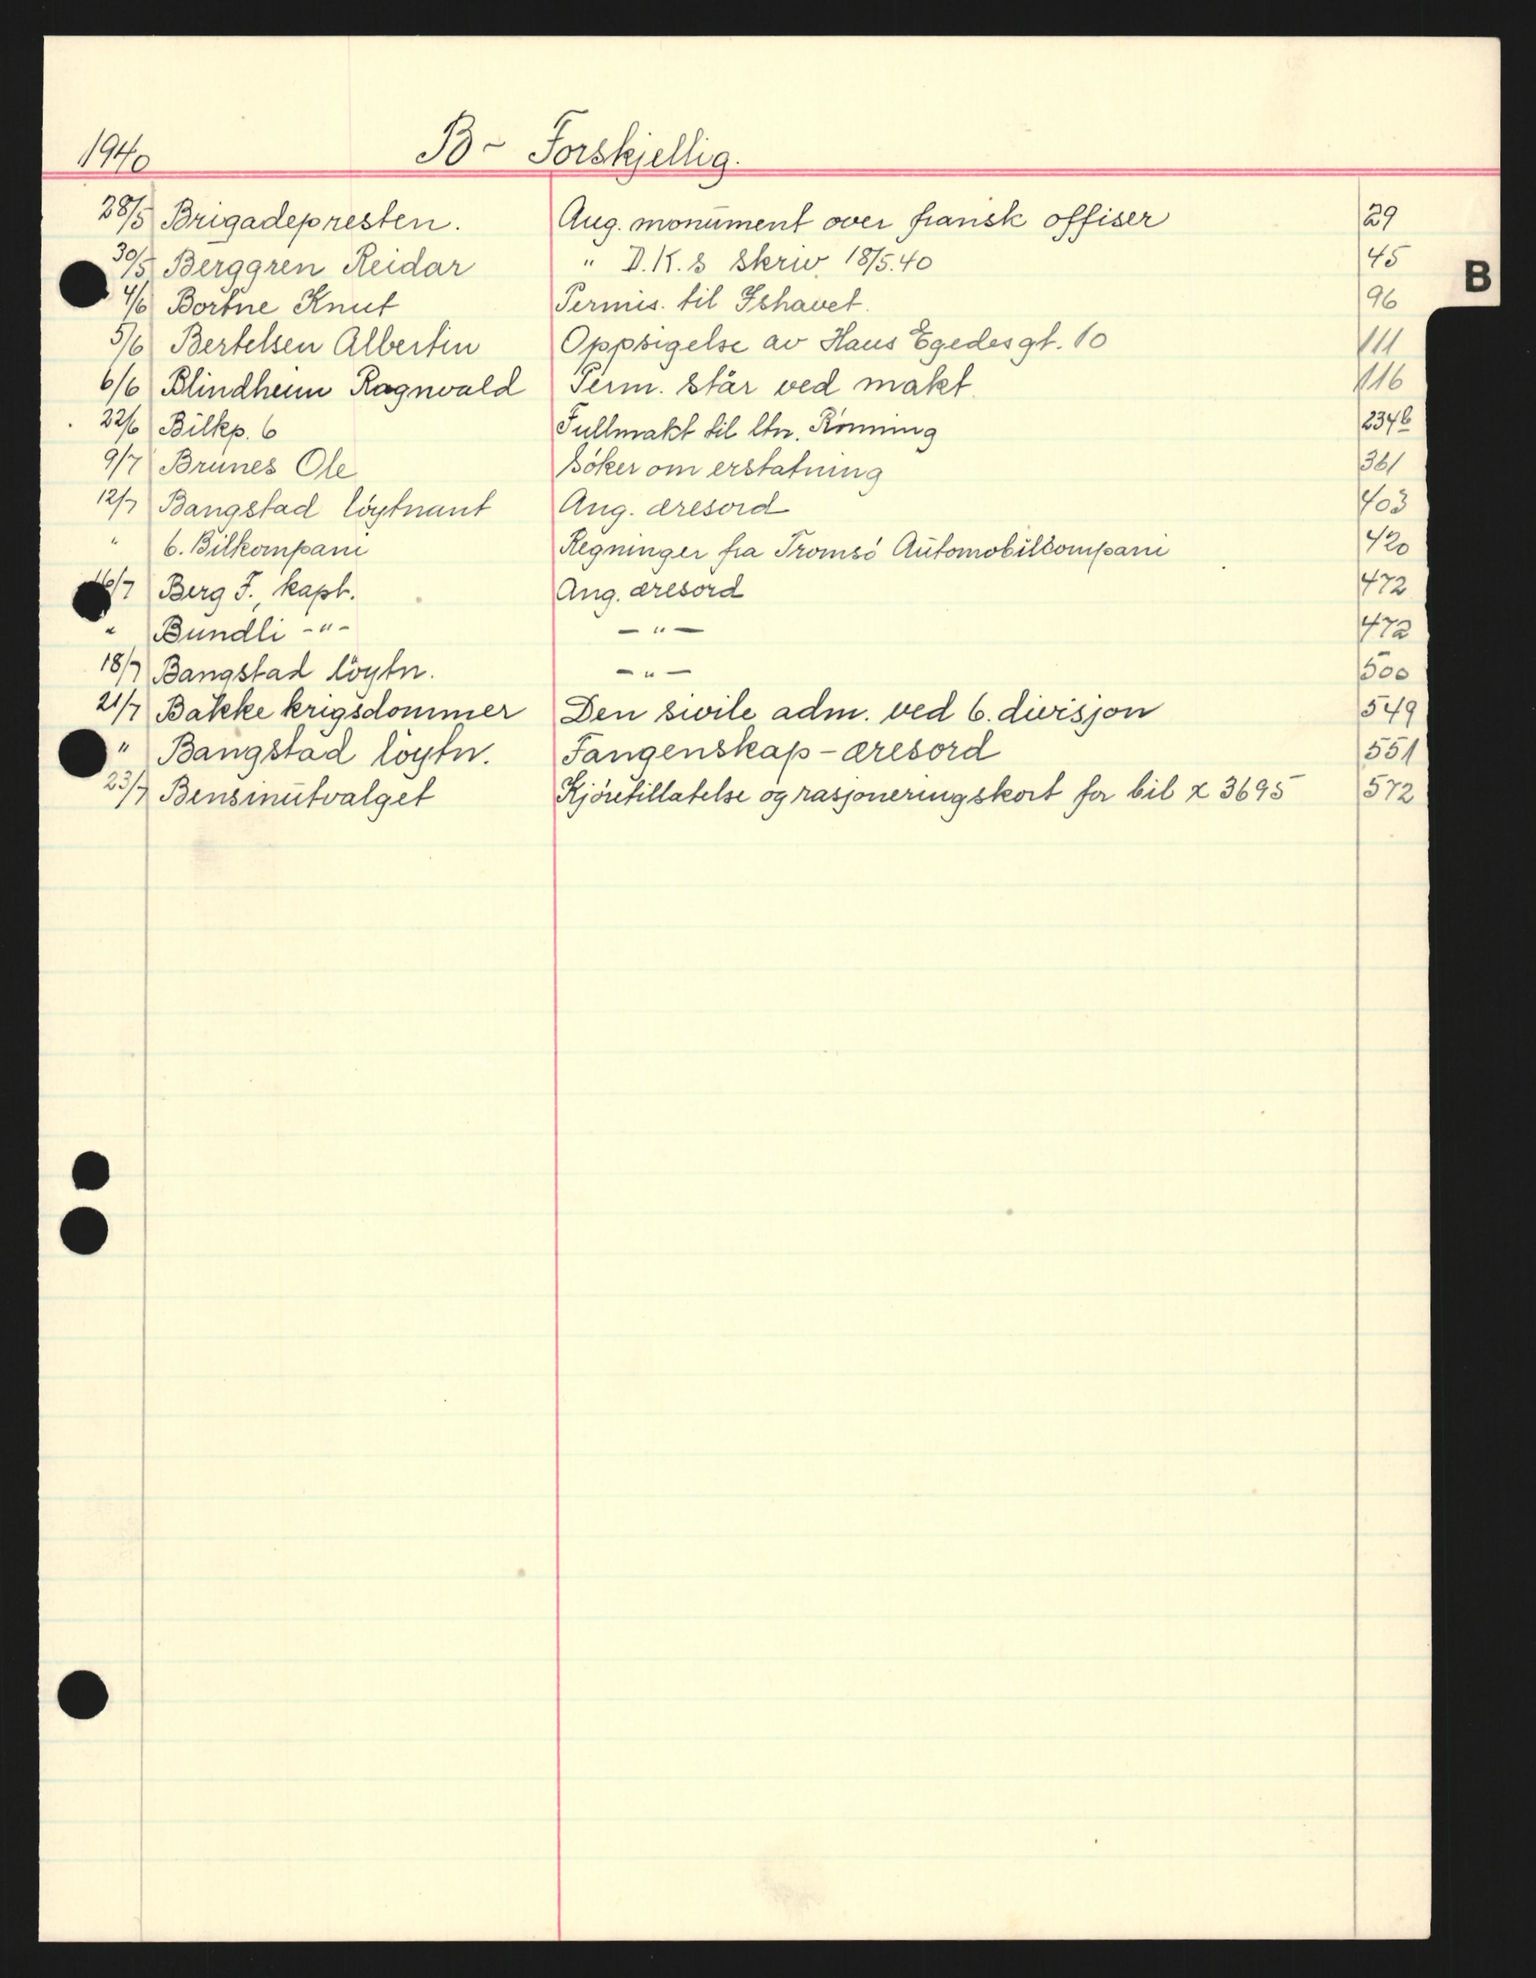 1940 B - Forskjellig.
28/5 Brigadepresten. Ang. monument over fransk offiser 29
30/5 Berggren Reidar " D.K.s skriv 18/5.40 45
B
4/6 Bortne Knut Permis. til Ishavet. 96
5/6 Bertelsen Albertin Oppsigelse av Hans Egedesgt. 10 111
6/6 Blindheim Ragnvald Perm. står ved makt. 116
22/6 Bilkp. 6 Fullmakt til ltn. Rönning 234b
9/7 Brunes Ole Söker om erstatning 361
12/7 Bangstad löytnant Ang. æresord 403
" 6. Bilkompani Regninger fra Tromsö Automobilkompani 420
16/7 Berg F., kapt. Ang. æresord 472
" Bundli -"- -"- 472
18/7 Bangstad löytn. -"- 500
21/7 Bakke krigsdommer Den sivile adm. ved 6. divisjon 549
" Bangstad löytn. Fangenskap - æresord 551
23/7 Bensinutvalget Kjöretillatelse og rasjoneringskort for bil x 3695 572